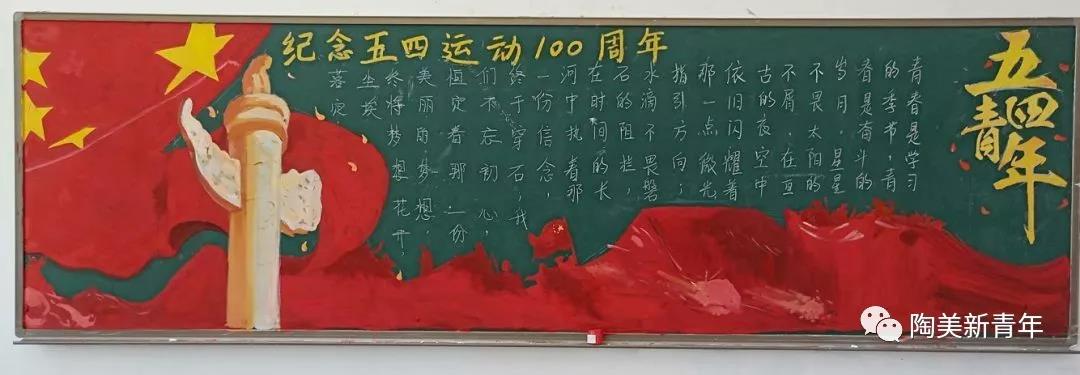 纪念五四运动100周年
五四
青年
青春是学习
的季节，青
春是奋斗的
岁月。星星
不畏太阳的
不屑，在亘
古的夜空中
依旧闪耀着
那一点微光
指引方向；
水滴不畏磐
石的阻拦，
在时间的长
河中执着那
一份信念，
终于穿石，我
们不忘初心，
恒定着那一份
美丽的梦想，
终将梦想花开，
尘埃
落定
陶美新青年